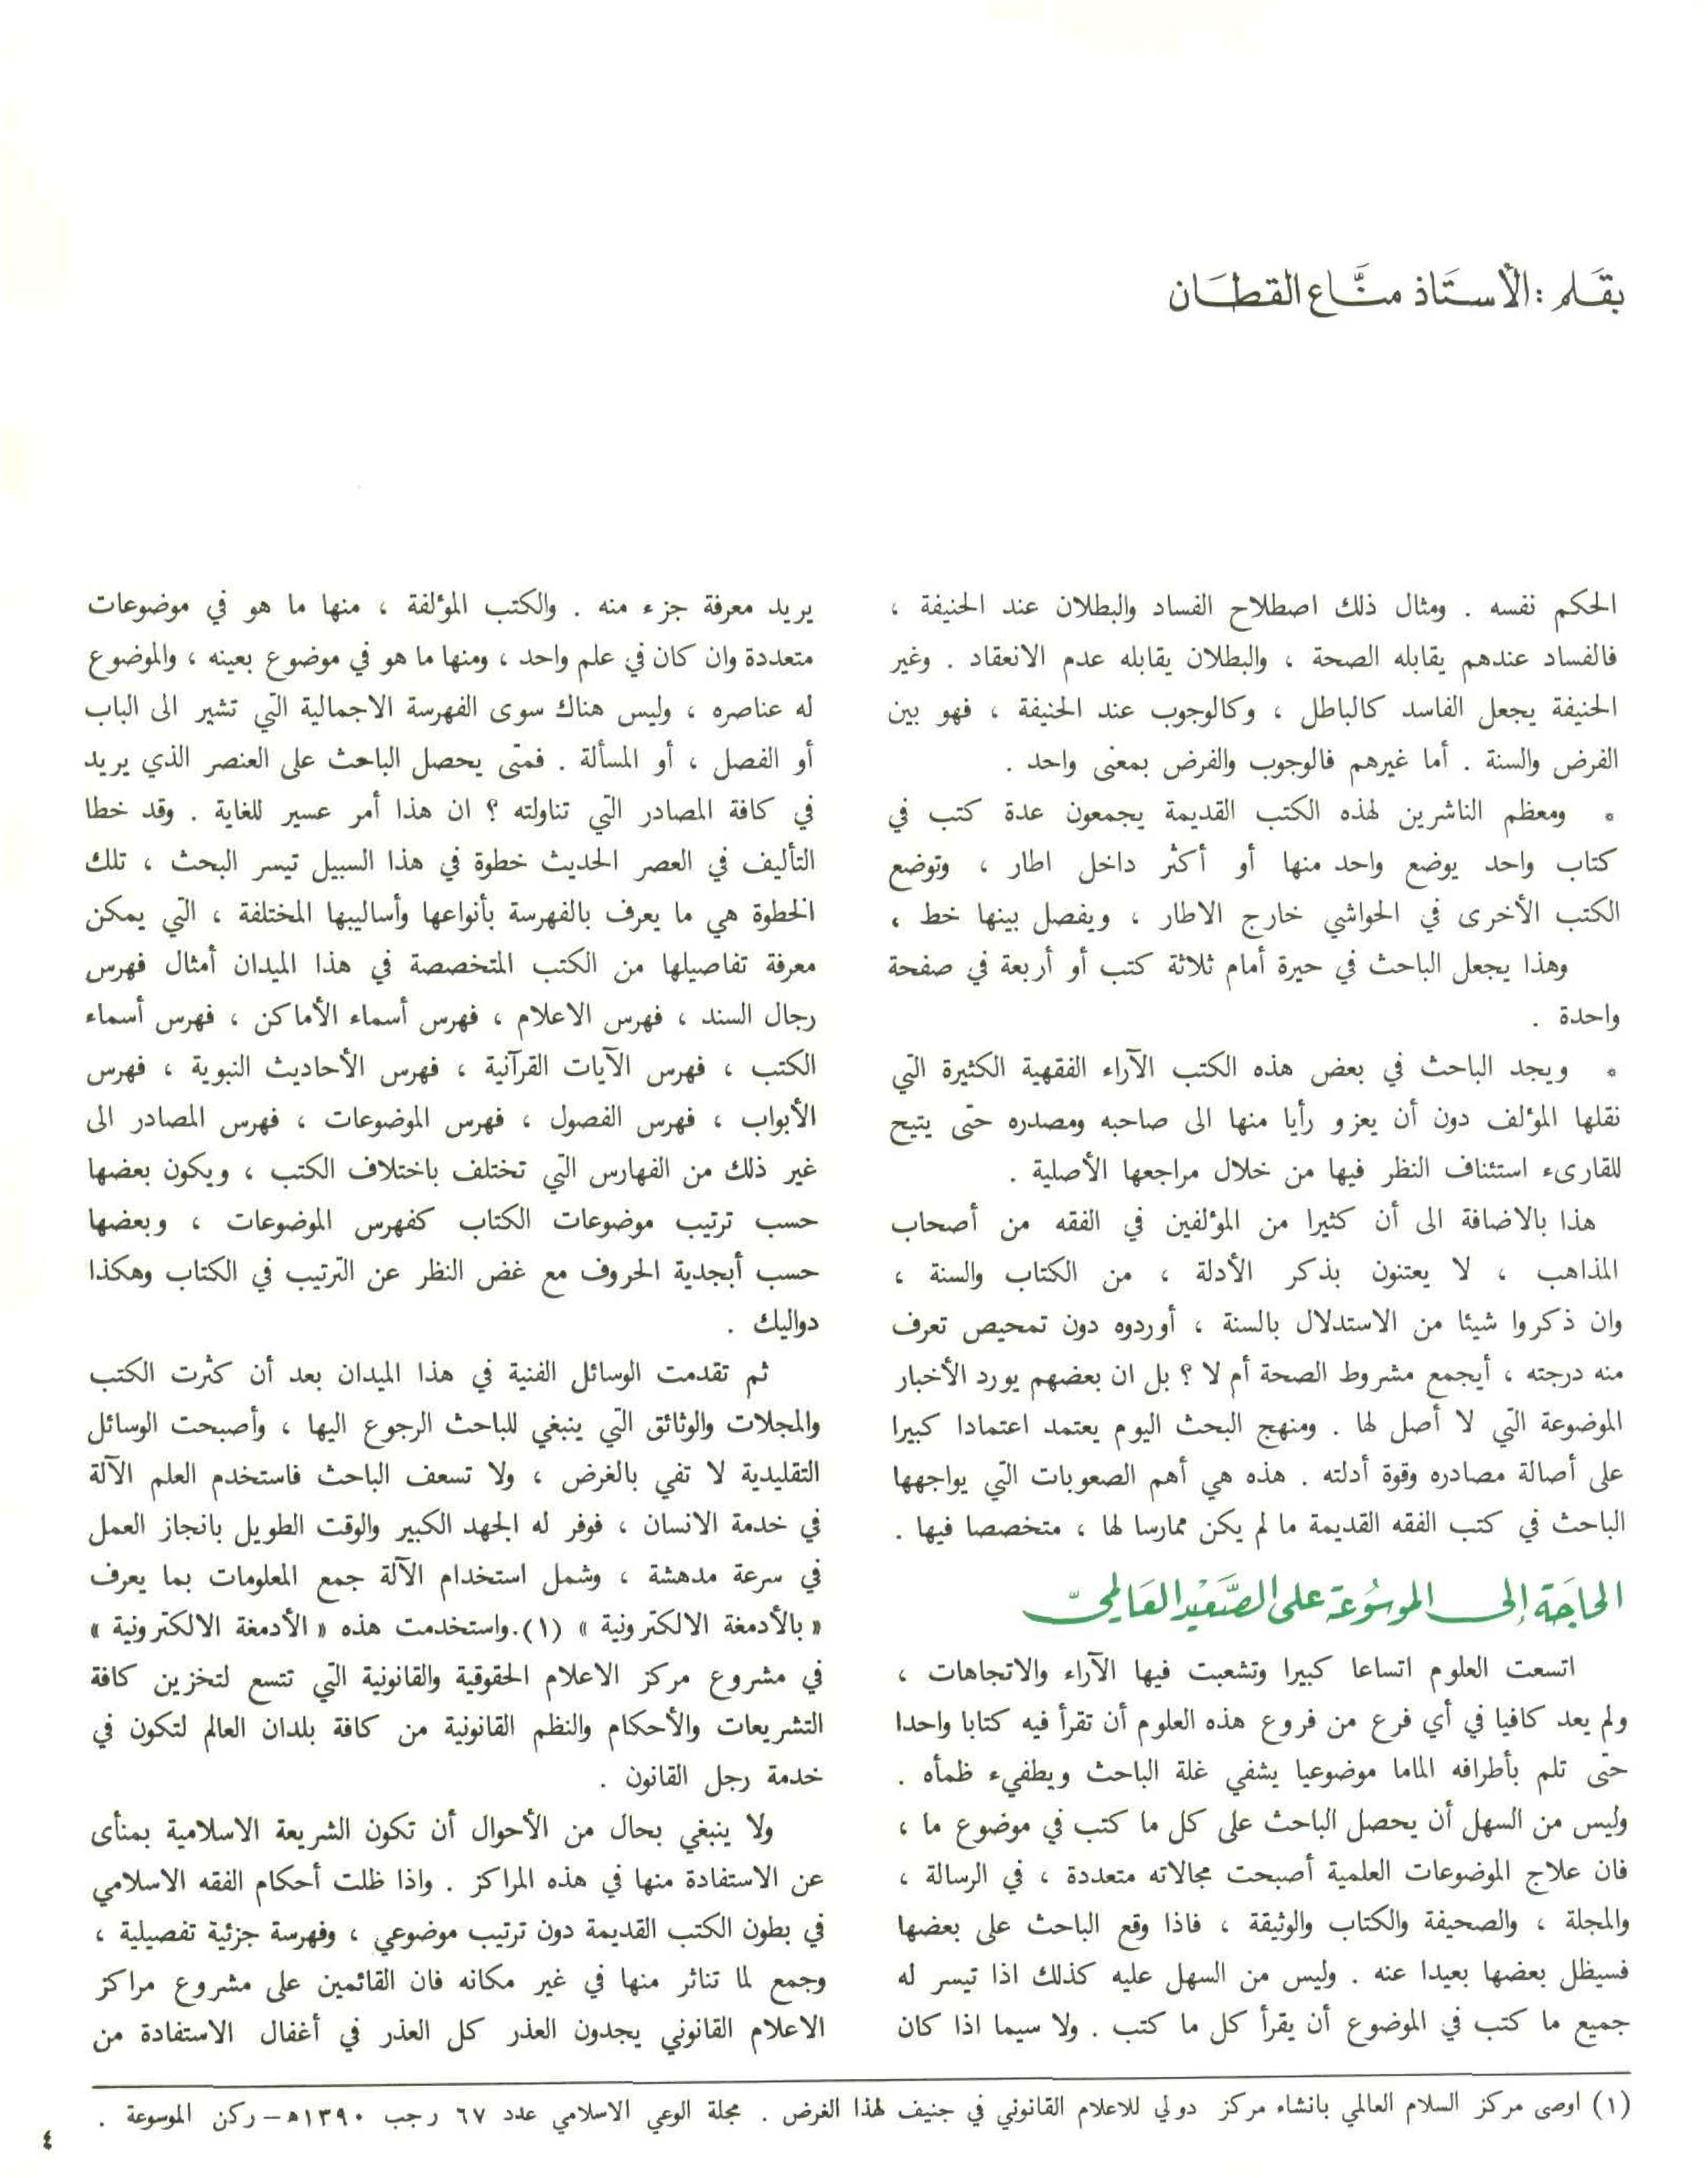 بقَلم : الأستَاذ منَّاع القطَان
الحكم نفسه . ومثال ذلك اصطلاح الفساد والبطلان عند الحنيفة ،
فالفساد عندهم يقابله الصحة ، والبطلان يقابله عدم الانعقاد . وغير
الحنيفة يجعل الفاسد كالباطل ، وكالوجوب عند الحنيفة ، فهو بين
الفرض والسنة . أما غيرهم فالوجوب والفرض بمعنى واحد .
* ومعظم الناشرين لهذه الكتب القديمة يجمعون عدة كتب في
كتاب واحد يوضع واحد منها أو أكثر داخل اطار ، وتوضع
الكتب الأخرى في الحواشي خارج الاطار ، ويفصل بينها خط ،
وهذا يجعل الباحث في حيرة أمام ثلاثة كتب أو أربعة في صفحة
واحدة .
* ويجد الباحث في بعض هذه الكتب الآراء الفقهية الكثيرة التي
نقلها المؤلف دون أن يعزو رأيا منها الى صاحبه ومصدره حتى يتيح
للقارىء استئناف النظر فيها من خلال مراجعها الأصلية .
هذا بالاضافة الى أن كثيرا من المؤلفين في الفقه من أصحاب
المذاهب ، لا يعتنون بذكر الأدلة ، من الكتاب والسنة ،
وان ذكروا شيئا من الاستدلال بالسنة ، أوردوه دون تمحيص تعرف
منه درجته ، أيجمع مشروط الصحة أم لا ؟ بل ان بعضهم يورد الأخبار
الموضوعة التي لا أصل لها . ومنهج البحث اليوم يعتمد اعتمادا كبيرا
على أصالة مصادره وقوة أدلته . هذه هي أهم الصعوبات التي يواجهها
الباحث في كتب الفقه القديمة ما لم يكن ممارسا لها ، متخصصا فيها .
الحاجَة إلى الموسُوعَة على الصَّعيْد العَالميّ
اتسعت العلوم اتساعا كبيرا وتشعبت فيها الآراء والاتجاهات ،
ولم يعد كافيا في أي فرع من فروع هذه العلوم أن تقرأ فيه كتابا واحدا
حتى تلم بأطرافه الماما موضوعيا يشفي غلة الباحث ويطفيء ظمأه .
وليس من السهل أن يحصل الباحث على كل ما كتب في موضوع ما ،
فان علاج الموضوعات العلمية أصبحت مجالاته متعددة ، في الرسالة ،
والمجلة ، والصحيفة والكتاب والوثيقة ، فاذا وقع الباحث على بعضها
فسيظل بعضها بعيدا عنه . وليس من السهل عليه كذلك اذا تيسر له
جميع ما كتب في الموضوع أن يقرأ كل ما كتب . ولا سيما اذا كان
يريد معرفة جزء منه . والكتب المؤلفة ، منها ما هو في موضوعات
متعددة وان كان في علم واحد ، ومنها ما هو في موضوع بعينه ، والموضوع
له عناصره ، وليس هناك سوى الفهرسة الاجمالية التي تشير الى الباب
أو الفصل ، أو المسألة . فمتى يحصل الباحث على العنصر الذي يريد
في كافة المصادر التي تناولته ؟ ان هذا أمر عسير للغاية . وقد خطا
التأليف في العصر الحديث خطوة في هذا السبيل تيسر البحث ، تلك
الخطوة هي ما يعرف بالفهرسة بأنواعها وأساليبها المختلفة ، التي يمكن
معرفة تفاصيلها من الكتب المتخصصة في هذا الميدان أمثال فهرس
رجال السند ، فهرس الاعلام ، فهرس أسماء الأماكن ، فهرس أسماء
الكتب ، فهرس الآيات القرآنية ، فهرس الأحاديث النبوية ، فهرس
الأبواب ، فهرس الفصول ، فهرس الموضوعات ، فهرس المصادر الى
غير ذلك من الفهارس التي تختلف باختلاف الكتب ، ويكون بعضها
حسب ترتيب موضوعات الكتاب كفهرس الموضوعات ، وبعضها
حسب أبجدية الحروف مع غض النظر عن الترتيب في الكتاب وهكذا
دواليك .
ثم تقدمت الوسائل الفنية في هذا الميدان بعد أن كثرت الكتب
والمجلات والوثائق التي ينبغي للباحث الرجوع اليها ، وأصبحت الوسائل
التقليدية لا تفي بالغرض ، ولا تسعف الباحث فاستخدم العلم الآلة
في خدمة الانسان ، فوفر له الجهد الكبير والوقت الطويل بانجاز العمل
في سرعة مدهشة ، وشمل استخدام الآلة جمع المعلومات بما يعرف
« بالأدمغة الالكترونية » (١).واستخدمت هذه « الأدمغة الالكترونية »
في مشروع مركز الاعلام الحقوقية والقانونية التي تتسع لتخزين كافة
التشريعات والأحكام والنظم القانونية من كافة بلدان العالم لتكون في
خدمة رجل القانون .
ولا ينبغي بحال من الأحوال أن تكون الشريعة الاسلامية بمنأى
عن الاستفادة منها في هذه المراكز . واذا ظلت أحكام الفقه الاسلامي
في بطون الكتب القديمة دون ترتيب موضوعي ، وفهرسة جزئية تفصيلية ،
وجمع لما تناثر منها في غير مكانه فان القائمين على مشروع مراكز
الاعلام القانوني يجدون العذر كل العذر في أغفال الاستفادة من
(١) اوصى مركز السلام العالمي بانشاء مركز دولي للاعلام القانوني في جنيف لهذا الغرض . مجلة الوعي الاسلامي عدد ٦٧ رجب ١٣٩٠هـ – ركن الموسوعة .
٤